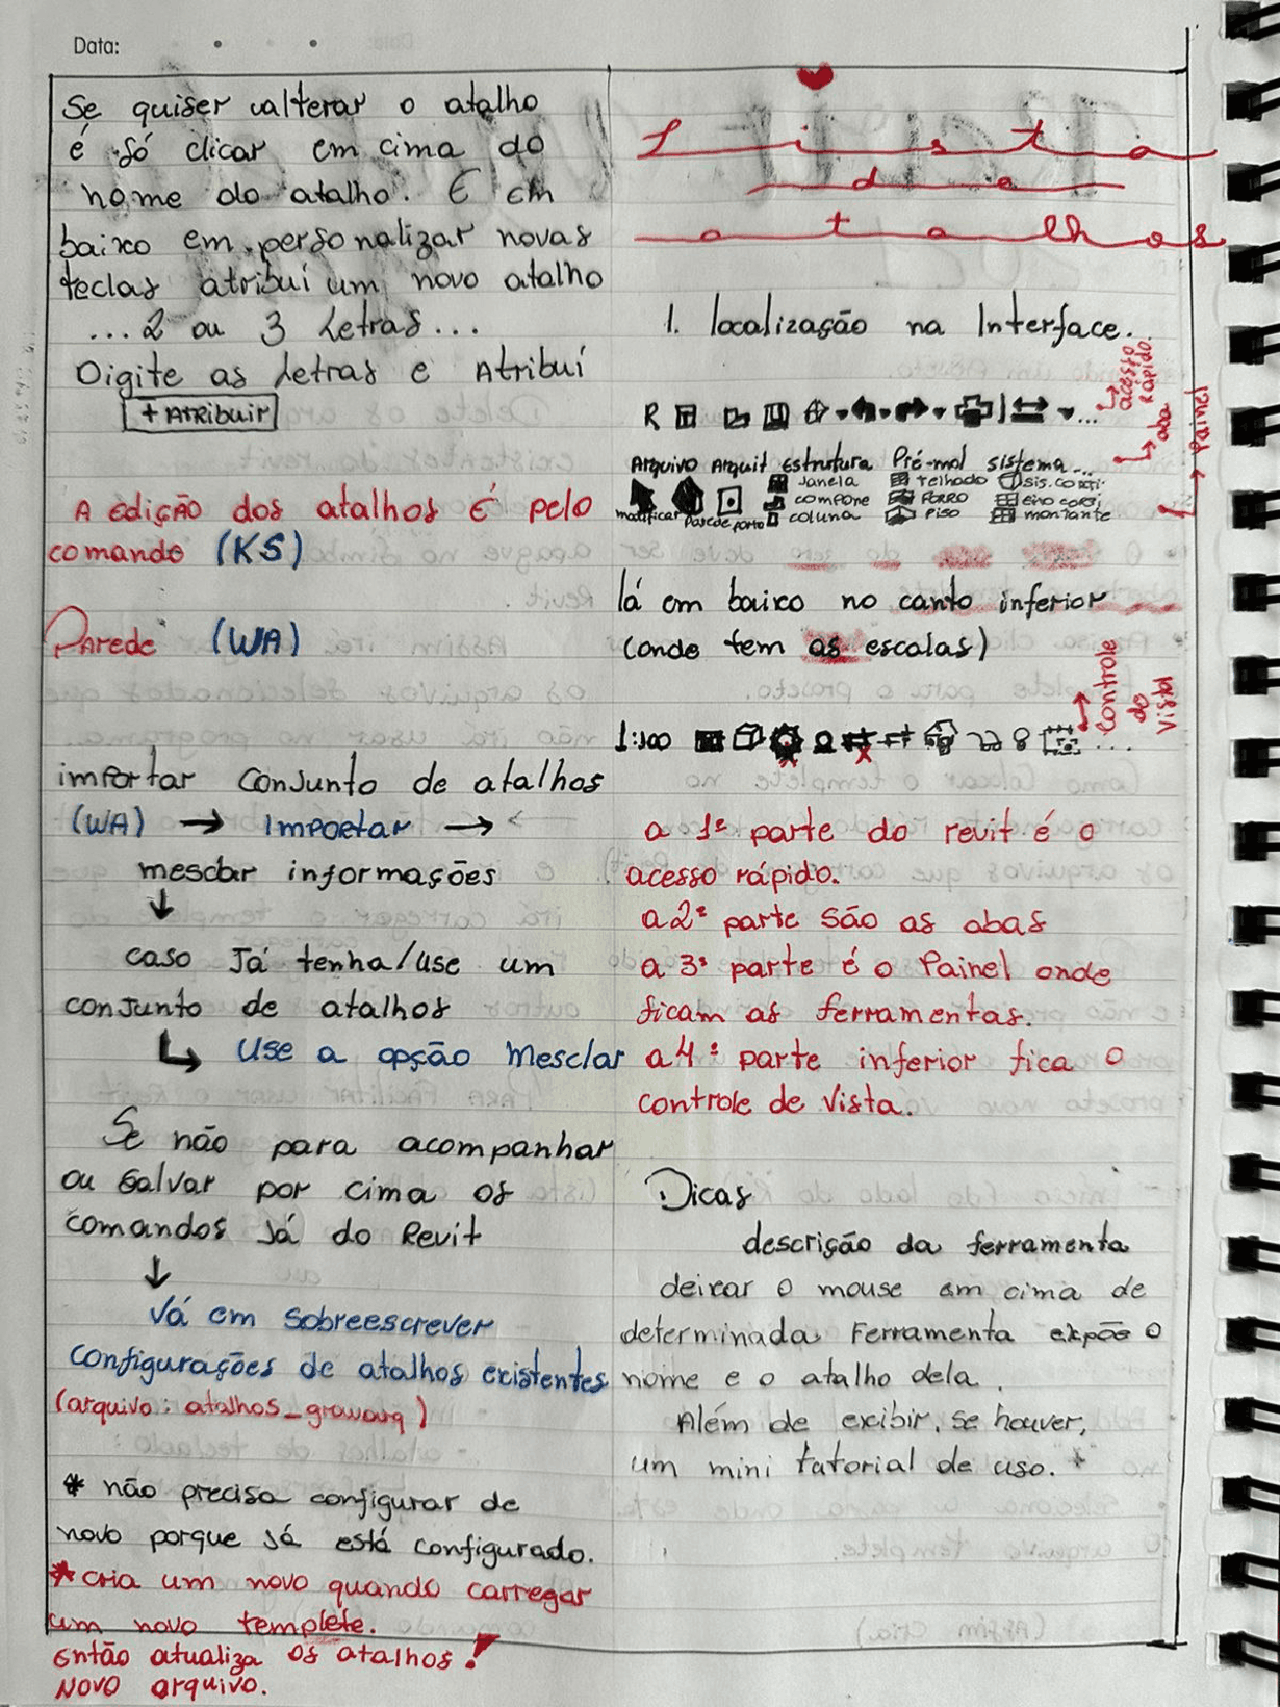 Data:
Se quiser alterar o atalho
é só clicar em cima do
nome do atalho. E em
baixo em personalizar novas
teclas atribuí um novo atalho
...2 ou 3 Letras...
Digite as Letras e Atribuí
+ Atribuir
A edição dos atalhos é pelo
comando (KS)
Parede (WA)
importar conjunto de atalhos
(WA) → Importar →
mesclar informações
↓
caso Já tenha/use um
conjunto de atalhos
↳ Use a opção Mesclar
Se não para acompanhar
ou salvar por cima os
comandos Já do Revit
↓
Vá em Sobreescrever
configurações de atalhos existentes
(arquivo: atalhos_
* não precisa configurar de
novo porque Já está configurado.
* cria um novo quando carregar
um novo templete.
então atualiza os atalhos!
Novo arquivo.
Lista
de
atalhos
1. localização na Interface.
R ...
acesso rápido.
Arquivo Arquit Estrutura Pré-mol sistema...
aba
Painel
modificar Parede porta
Janela
compone
coluna
telhado
Forro
Piso
sis.corti
eixo corti
montante
lá em baixo no canto inferior
(onde tem as escalas)
Controle do Vista
1:100 ...
a 1ª parte do revit é o
acesso rápido.
a 2ª parte São as abas
a 3ª parte é o Painel onde
ficam as ferramentas.
a 4ª parte inferior fica o
controle de Vista.
Dicas
descrição da ferramenta
deixar o mouse em cima de
determinada Ferramenta expõe o
nome e o atalho dela.
Além de exibir, se houver,
um mini tutorial de uso. *